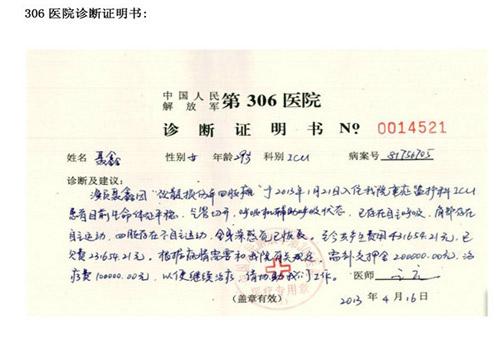 306 医院诊断证明书:
中国人民
解放军 第 306 医院
诊断证明书 № 0014521
姓名 聂鑫 性别 女 年龄 29岁 科别 ICU 病案号
诊断及建议:
于2013年1月21日入住我院 ICU
患者目前生命体征平稳, 气管切开, 呼吸机辅助呼吸状态, 已存在自主呼吸, 肩部存在
自主运动, 四肢存在不自主运动, 至今共产生费用431654.21元, 已
欠费231654.21元. 根据病情需要和我院有关规定, 需补交押金200000.00元, 治
疗费100000.00元, 以便继续治疗, 请协助我们工作.
医疗专用章
医师
(盖章有效)
2013 年 4 月 16 日